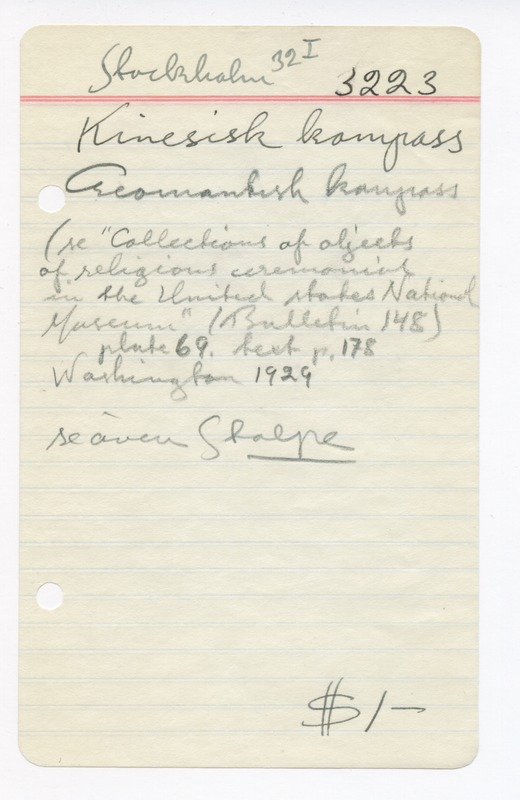 Stockholm 32 I 3223
Kinesisk kompass
Geomantisk kompass
(se "Collections of objects
of religious ceremonial
in the United states National
Museum" (Bulletin 148)
plate 69. text p. 178
Washington 1929
se även Stolpe
$ 1/-